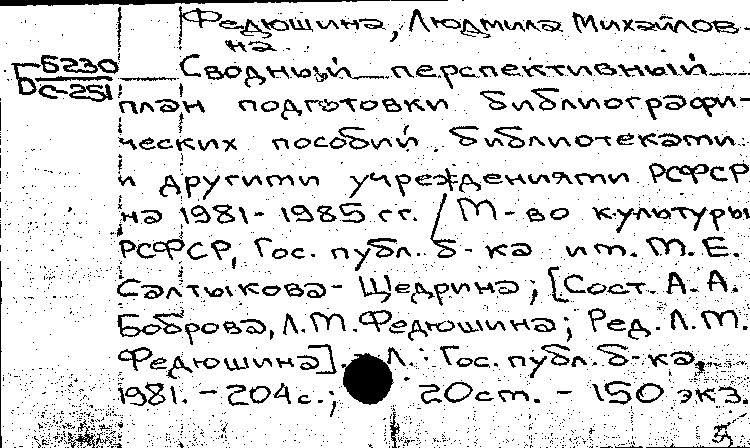 Федюшина, Людмила Михайлов-
на
Б230
С-251
Сводный перспективный
план подготовки библиографи-
ческих пособий библиотеками
и другими учреждениями РСФСР
на 1981-1985 гг. / М-во культуры
РСФСР, Гос. публ. б-ка им. М. Е.
Салтыкова-Щедрина; [Сост. А. А.
Боброва, Л. М. Федюшина; Ред. Л. М.
Федюшина]. - Л.: Гос. публ. б-ка,
1981. - 204 с.; 20 см. - 150 экз.